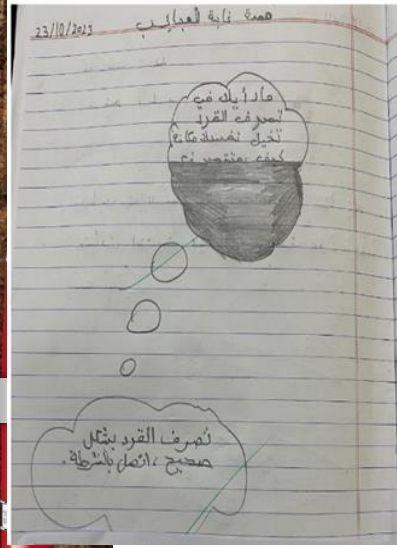 قصة غابة العجائب
23/10/2023
ما رأيك في
تصرف القرد
تخيل نفسك مكانه
كيف ستتصرف؟
تصرف القرد بشكل
صحيح ، اتصل بالشرطة .